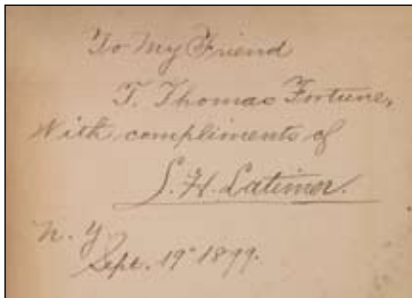 To My Friend
T. Thomas Fortune,
With compliments of
L. H. Latimer.
N. Y.
Sept. 19" 1899.